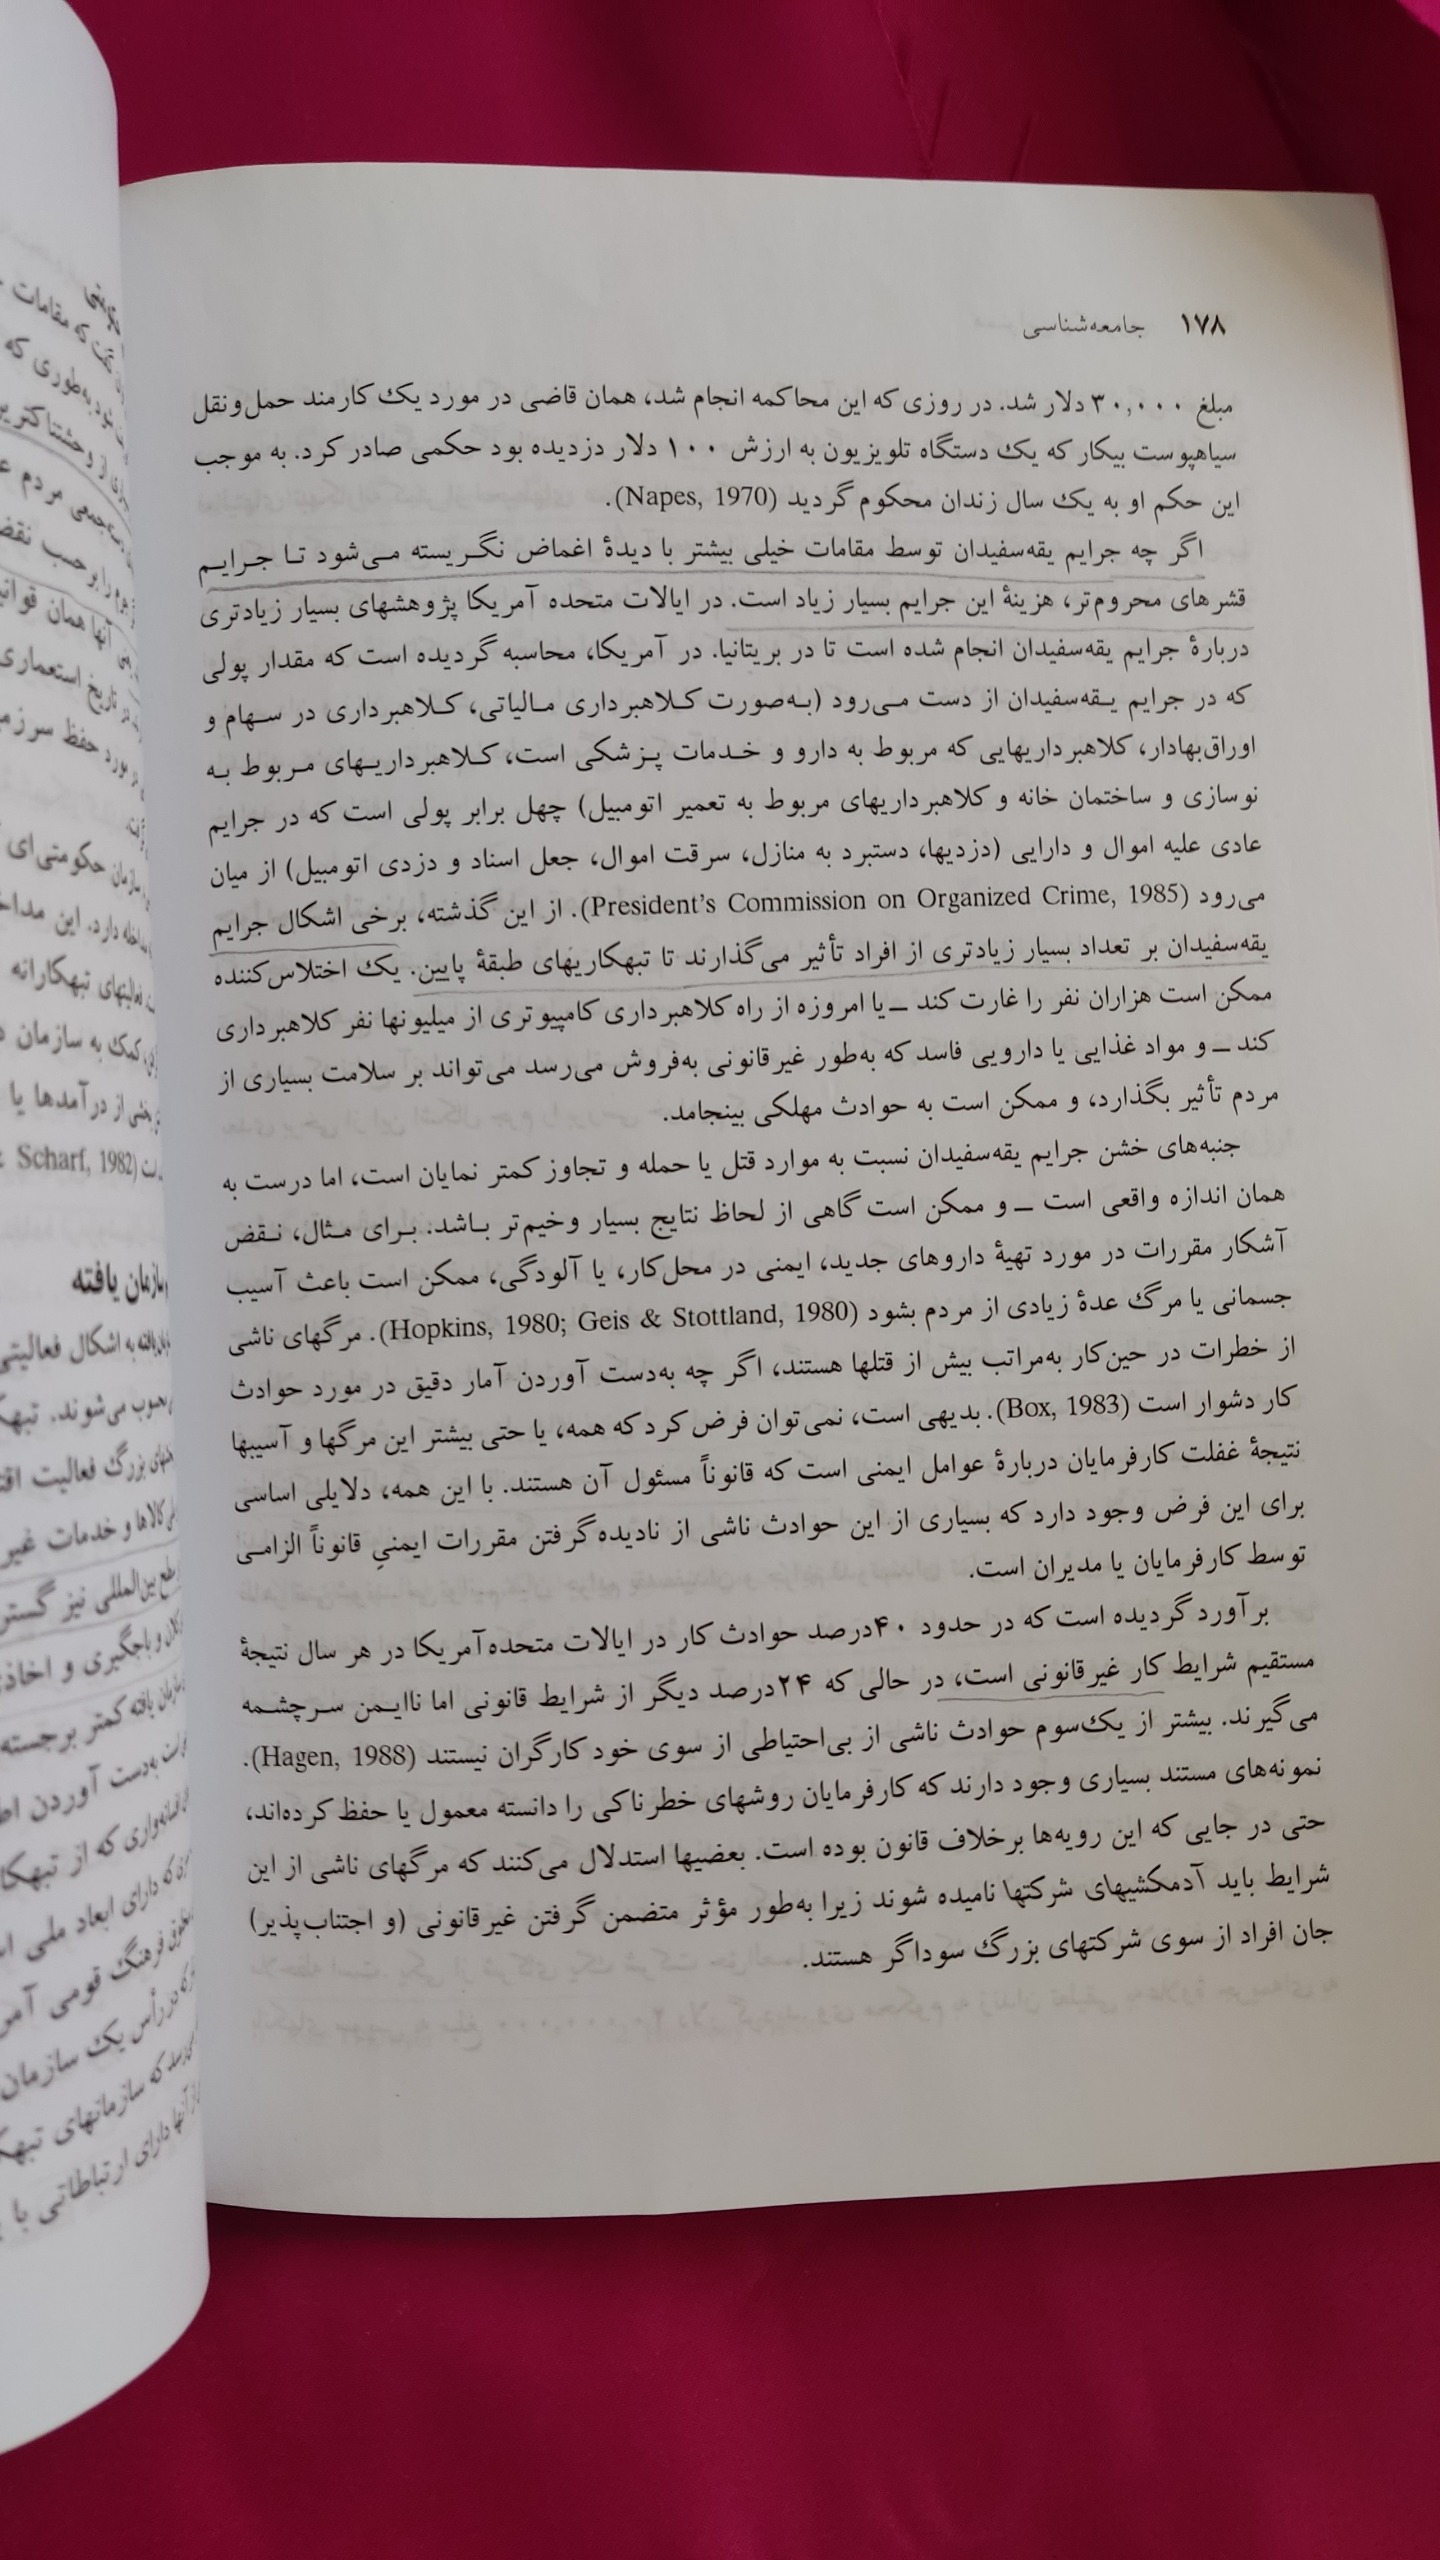 ۱۷۸ جامعه‌شناسی
مبلغ ۳۰,۰۰۰ دلار شد. در روزی که این محاکمه انجام شد، همان قاضی در مورد یک کارمند حمل‌ونقل
سیاهپوست بیکار که یک دستگاه تلویزیون به ارزش ۱۰۰ دلار دزدیده بود حکمی صادر کرد. به موجب
این حکم او به یک سال زندان محکوم گردید (Napes, 1970).
اگر چه جرایم یقه‌سفیدان توسط مقامات خیلی بیشتر با دیدۀ اغماض نگریسته می‌شود تا جرایم
قشرهای محروم‌تر، هزینۀ این جرایم بسیار زیاد است. در ایالات متحده آمریکا پژوهشهای بسیار زیادتری
دربارۀ جرایم یقه‌سفیدان انجام شده است تا در بریتانیا. در آمریکا، محاسبه گردیده است که مقدار پولی
که در جرایم یقه‌سفیدان از دست می‌رود (به‌صورت کلاهبرداری مالیاتی، کلاهبرداری در سهام و
اوراق‌بهادار، کلاهبرداریهایی که مربوط به دارو و خدمات پزشکی است، کلاهبرداریهای مربوط به
نوسازی و ساختمان خانه و کلاهبرداریهای مربوط به تعمیر اتومبیل) چهل برابر پولی است که در جرایم
عادی علیه اموال و دارایی (دزدیها، دستبرد به منازل، سرقت اموال، جعل اسناد و دزدی اتومبیل) از میان
می‌رود (President's Commission on Organized Crime, 1985). از این گذشته، برخی اشکال جرایم
یقه‌سفیدان بر تعداد بسیار زیادتری از افراد تأثیر می‌گذارند تا تبهکاریهای طبقۀ پایین. یک اختلاس‌کننده
ممکن است هزاران نفر را غارت کند ـ یا امروزه از راه کلاهبرداری کامپیوتری از میلیونها نفر کلاهبرداری
کند ـ و مواد غذایی یا دارویی فاسد که به‌طور غیرقانونی به‌فروش می‌رسد می‌تواند بر سلامت بسیاری از
مردم تأثیر بگذارد، و ممکن است به حوادث مهلکی بینجامد.
جنبه‌های خشن جرایم یقه‌سفیدان نسبت به موارد قتل یا حمله و تجاوز کمتر نمایان است، اما درست به
همان اندازه واقعی است ـ و ممکن است گاهی از لحاظ نتایج بسیار وخیم‌تر باشد. برای مثال، نقض
آشکار مقررات در مورد تهیۀ داروهای جدید، ایمنی در محل‌کار، یا آلودگی، ممکن است باعث آسیب
جسمانی یا مرگ عدۀ زیادی از مردم بشود (Hopkins, 1980; Geis & Stottland, 1980). مرگهای ناشی
از خطرات در حین‌کار به‌مراتب بیش از قتلها هستند، اگر چه به‌دست آوردن آمار دقیق در مورد حوادث
کار دشوار است (Box, 1983). بدیهی است، نمی‌توان فرض کرد که همه، یا حتی بیشتر این مرگها و آسیبها
نتیجۀ غفلت کارفرمایان دربارۀ عوامل ایمنی است که قانوناً مسئول آن هستند. با این همه، دلایلی اساسی
برای این فرض وجود دارد که بسیاری از این حوادث ناشی از نادیده‌گرفتن مقررات ایمنیِ قانوناً الزامی
توسط کارفرمایان یا مدیران است.
برآورد گردیده است که در حدود ۴۰درصد حوادث کار در ایالات متحده‌آمریکا در هر سال نتیجۀ
مستقیم شرایط کار غیرقانونی است، در حالی که ۲۴درصد دیگر از شرایط قانونی اما ناایمن سرچشمه
می‌گیرند. بیشتر از یک‌سوم حوادث ناشی از بی‌احتیاطی از سوی خود کارگران نیستند (Hagen, 1988).
نمونه‌های مستند بسیاری وجود دارند که کارفرمایان روشهای خطرناکی را دانسته معمول یا حفظ کرده‌اند،
حتی در جایی که این رویه‌ها برخلاف قانون بوده است. بعضیها استدلال می‌کنند که مرگهای ناشی از این
شرایط باید آدمکشیهای شرکتها نامیده شوند زیرا به‌طور مؤثر متضمن گرفتن غیرقانونی (و اجتناب‌پذیر)
جان افراد از سوی شرکتهای بزرگ سوداگر هستند.